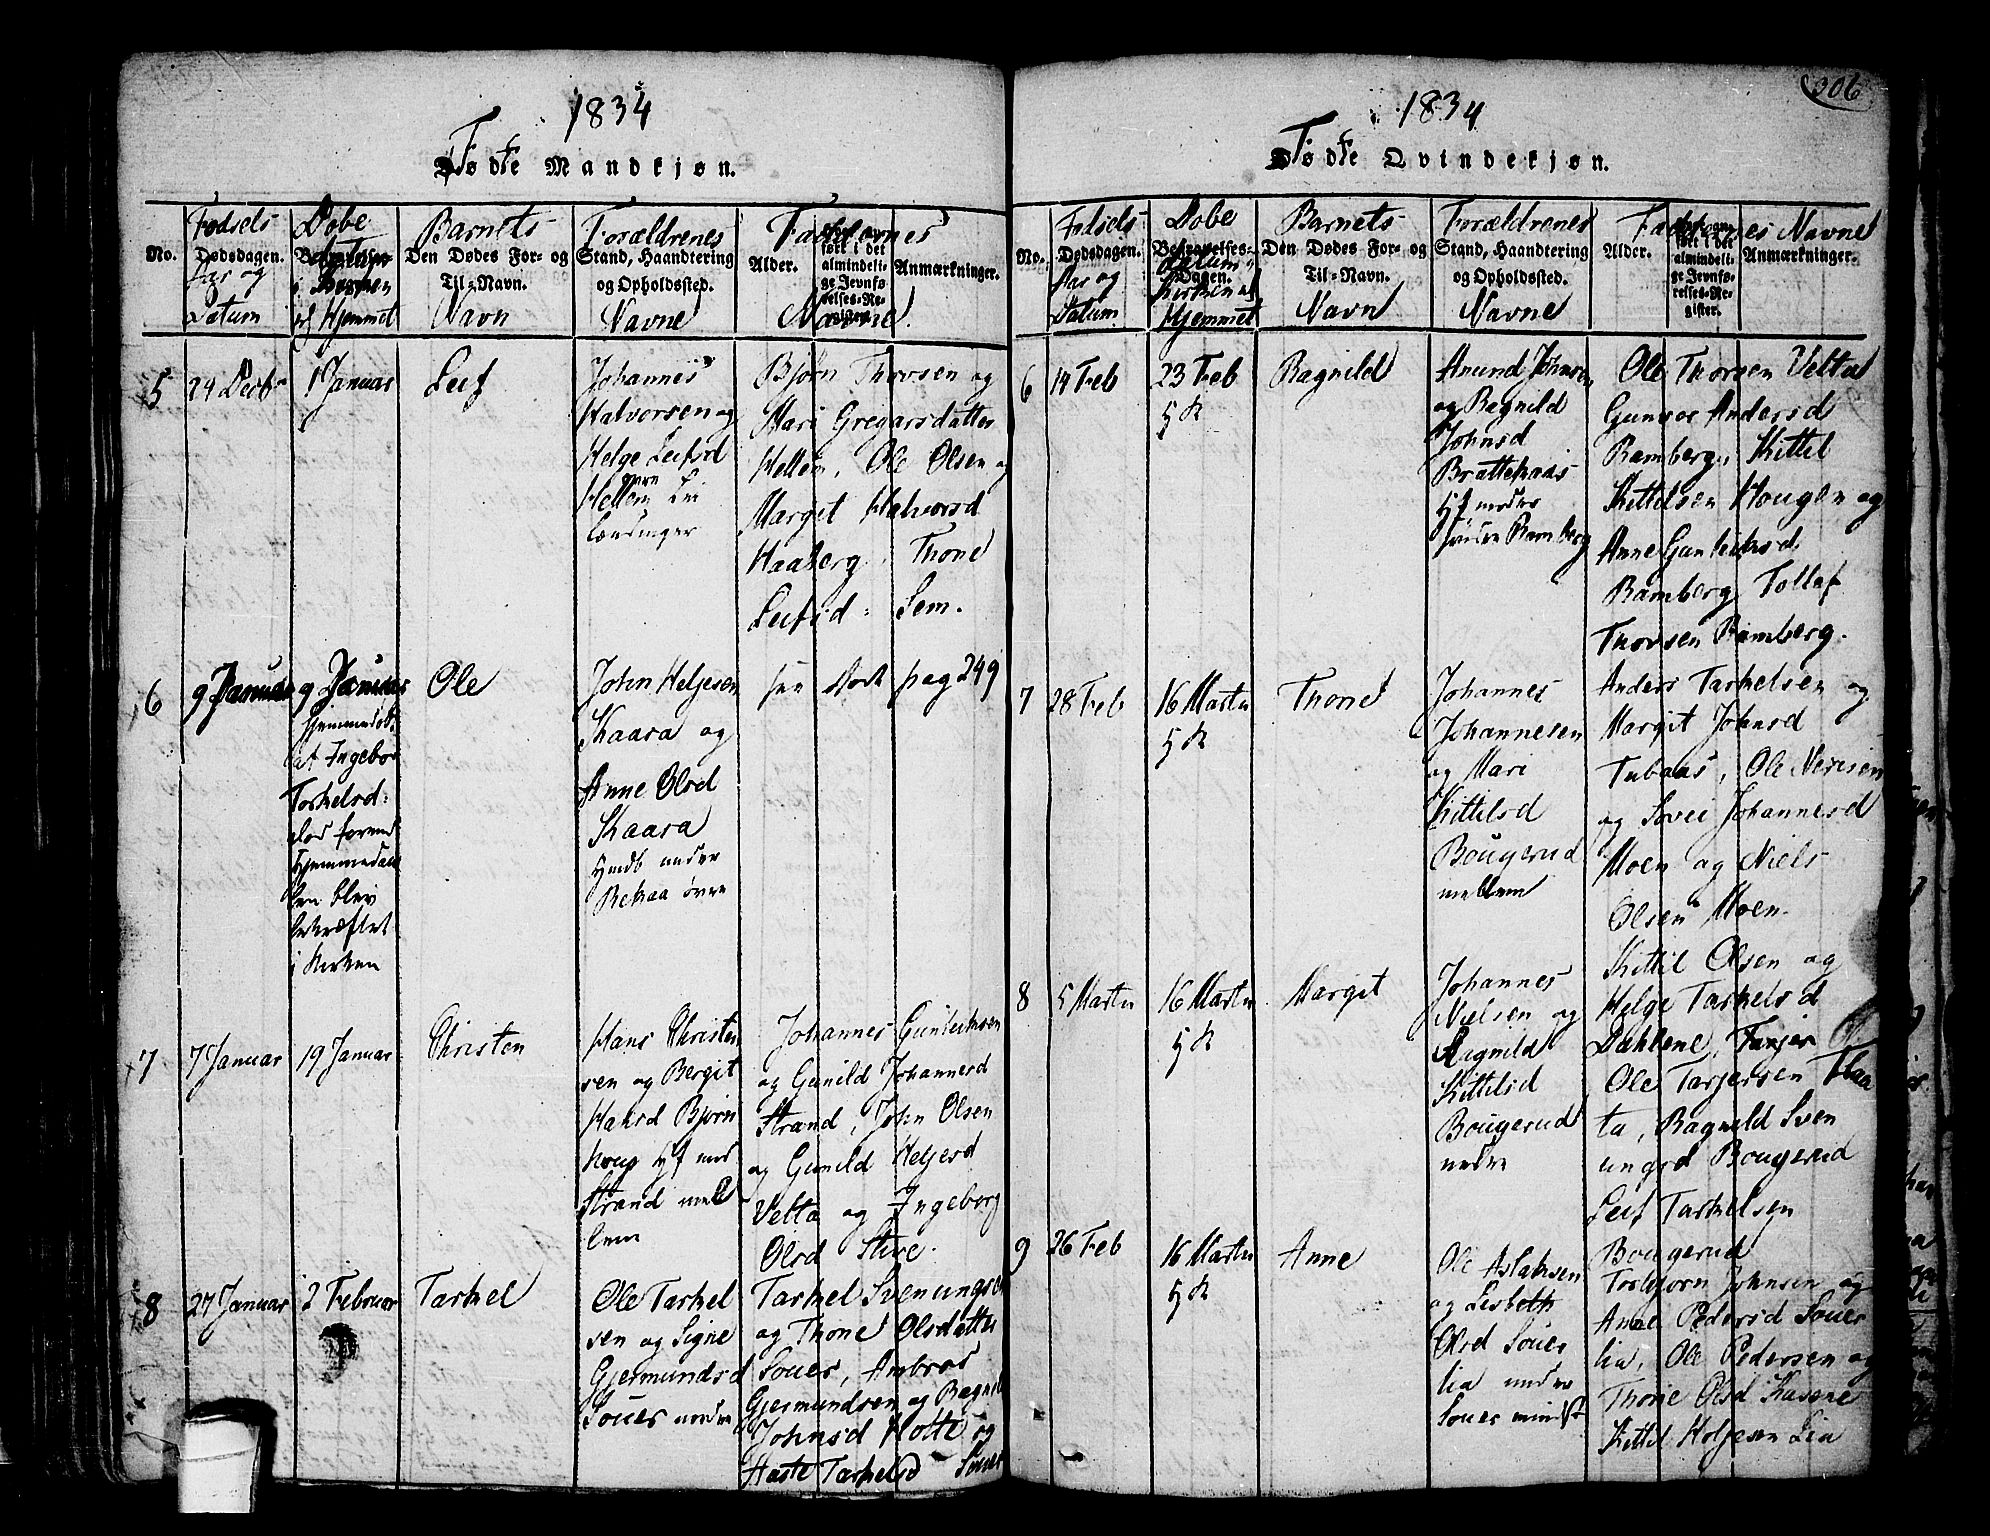 1834
Fødte Mandkjøn.
No.
Fødsels
Dødsdagen.
Aar og
Datum
Døbe
Datum
i Kirken
og Hjemmet
Barnets
Den Dødes For- og
Til-Navn.
Navn
Forældrenes
Stand, Haandtering
og Opholdssted.
Navne
Faddernes
Alder.
ført i det
almindeli-
ge Jevnfø-
relses-Re-
gister.
Anmærkninger.
Navne
5
24 Decbr
1 Januar
Leif
Johannes
Halvorsen og
Helge Leifsd
Hellem
Lændinger
Bjørn Thovsen og
Mari Gregarsdatter
Hellem, Ole Olsen og
Margit Halvorsd
Haaberg, Thone
Leifsd: Sem.
6
9 Januar
9 Januar
Hjemmedøbt
af Ingebor
Torkelsd:
Hjemmedaa
ben blev
bekræftet
i Kirken
Ole
John Heljesen
Kaara og
Anne Olsd
Kaara
under
Rekaa øvre
pag 249
7
7 Januar
19 Januar
Christen
Hans Christen
sen og Bergit
Haavd Bjørn
houg Hf und
Strand mel
lem
Johannes Gunleiksen
og Gunild Johannesd
Strand, John Olsen
og Gunild Heljesd
Velta og Ingeborg
Olsd Stive.
8
27 Januar
2 Februar
Tarkel
Ole Tarkel
sen og Signe
Gjermundsd
Souer nordre
Tarkel Svenungsen
og Thone Olsdatter
Souer, Ambros
Gjermundsen og Ragnil
Johnsd Holte og
Haste Tarkelsd Souer
306
1834
Fødte Qvindekjøn.
No.
Fødsels
Dødsdagen.
Aar og
Datum
Døbe
Begravelses-
Dagen.
Datum i
Kirken og
Hjemmet
Barnets
Den Dødes For- og
Til-Navn.
Navn
Forældrenes
Stand, Haandtering
og Opholdssted.
Navne
Faddernes Navne
Alder.
ført i det
almindeli-
ge Jevnfø-
relses-Re-
gister.
Anmærkninger.
6
14 Feb
23 Feb
5 K
Ragnild
Anund Johnsen
og Ragnild
Johnsd
Brattekaas
Hf under
søndre Ramberg
Ole Thorsen Velta
Gunvor Andersd
Ramberg, Kittil
Kittilsen Hougen og
Anne Gunleiksd
Ramberg Tollef
Thovsen Ramberg.
7
28 Feb
16 Marts
5 K
Thone
Johannes
Johannesen
og Mari
Kittilsd
Bougerud
mellem
Anders Tarkelsen og
Margit Johnsd
Tubaas, Ole Nerisen
og Sovei Johannesd
Moen og Niels
Olsen Moen.
8
5 Marts
16 Marts
5 K
Margit
Johannes
Nielsen og
Ragnild
Kittilsd
Bougerud
nedre
Kittil Olsen og
Helge Tarkelsd
Dahlene, Tarjer
Ole Tarjersen Flaa
ta, Ragnild Sven
ungsd Bougerud
Leif Tarkelsen
Bougerud
9
26 Feb
16 Marts
5 K
Anne
Ole Aslaksen
og Lisbeth
Olsd Souer
lia under
Souer mindst
Torbjørn Johnsen og
Anne Pedersd Souer
lia, Ole Pedersen og
Thone Olsd Kasene
Kittil Holjesen Lia